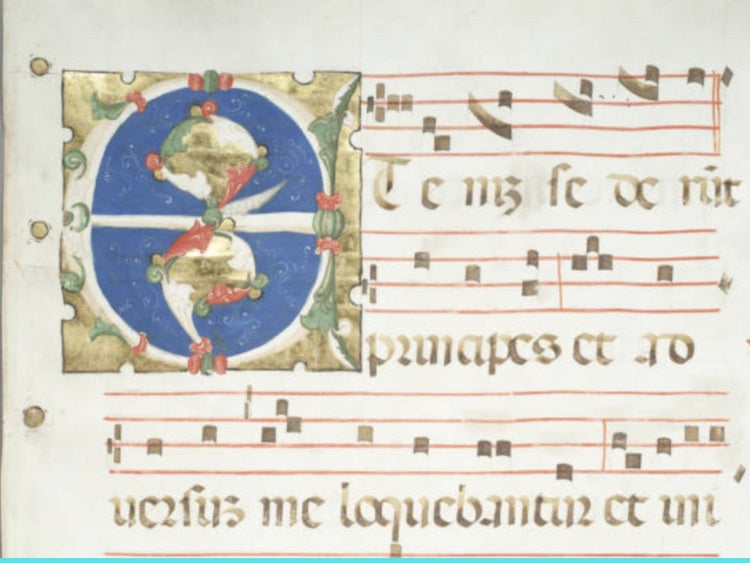 ETe nim se de rūt
principes et ad
uersus me loquebantur et ini